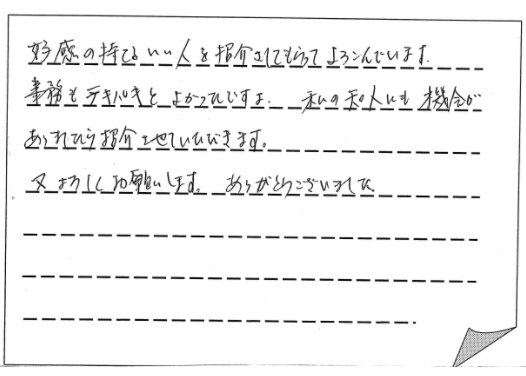 好感の持てるいい人を紹介してもらってよろこんでいます。
業務もテキパキとよかったですよ。私の知人にも機会が
あられたら紹介させていただきます。
又よろしくお願いします。ありがとうございました